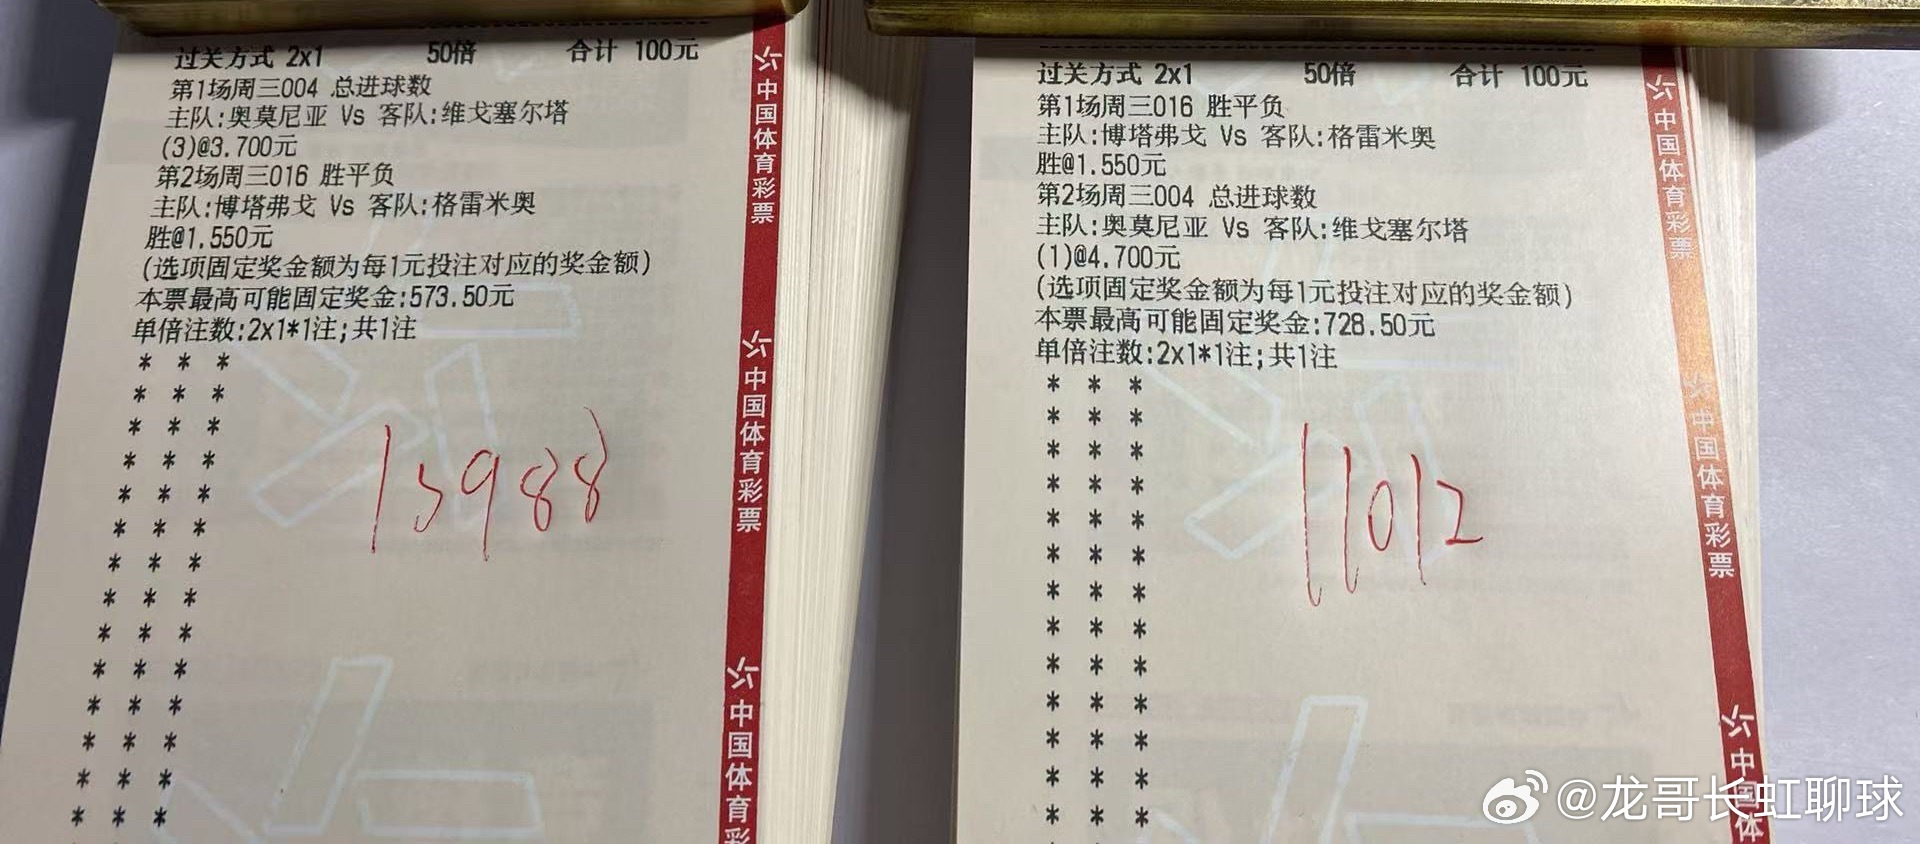 过关方式 2x1 50倍 合计 100元
第1场周三004 总进球数
主队:奥莫尼亚 Vs 客队:维戈塞尔塔
(3)@3.700元
第2场周三016 胜平负
主队:博塔弗戈 Vs 客队:格雷米奥
胜@1.550元
(选项固定奖金额为每1元投注对应的奖金额)
本票最高可能固定奖金:573.50元
单倍注数:2x1*1注;共1注
* * *
* * *
* * *
* * *
* * *
* * *
* * *
* * *
* * *
* * *
* * *
* * *
* * *
* * *
15988
中国体育彩票
中国体育彩票
中国体育彩
过关方式 2x1 50倍 合计 100元
第1场周三016 胜平负
主队:博塔弗戈 Vs 客队:格雷米奥
胜@1.550元
第2场周三004 总进球数
主队:奥莫尼亚 Vs 客队:维戈塞尔塔
(1)@4.700元
(选项固定奖金额为每1元投注对应的奖金额)
本票最高可能固定奖金:728.50元
单倍注数:2x1*1注;共1注
* * *
* * *
* * *
* * *
* * *
* * *
* * *
* * *
* * *
* * *
* * *
* * *
* * *
11012
中国体育彩票
中国体育彩票
中国体
@龙哥长虹聊球